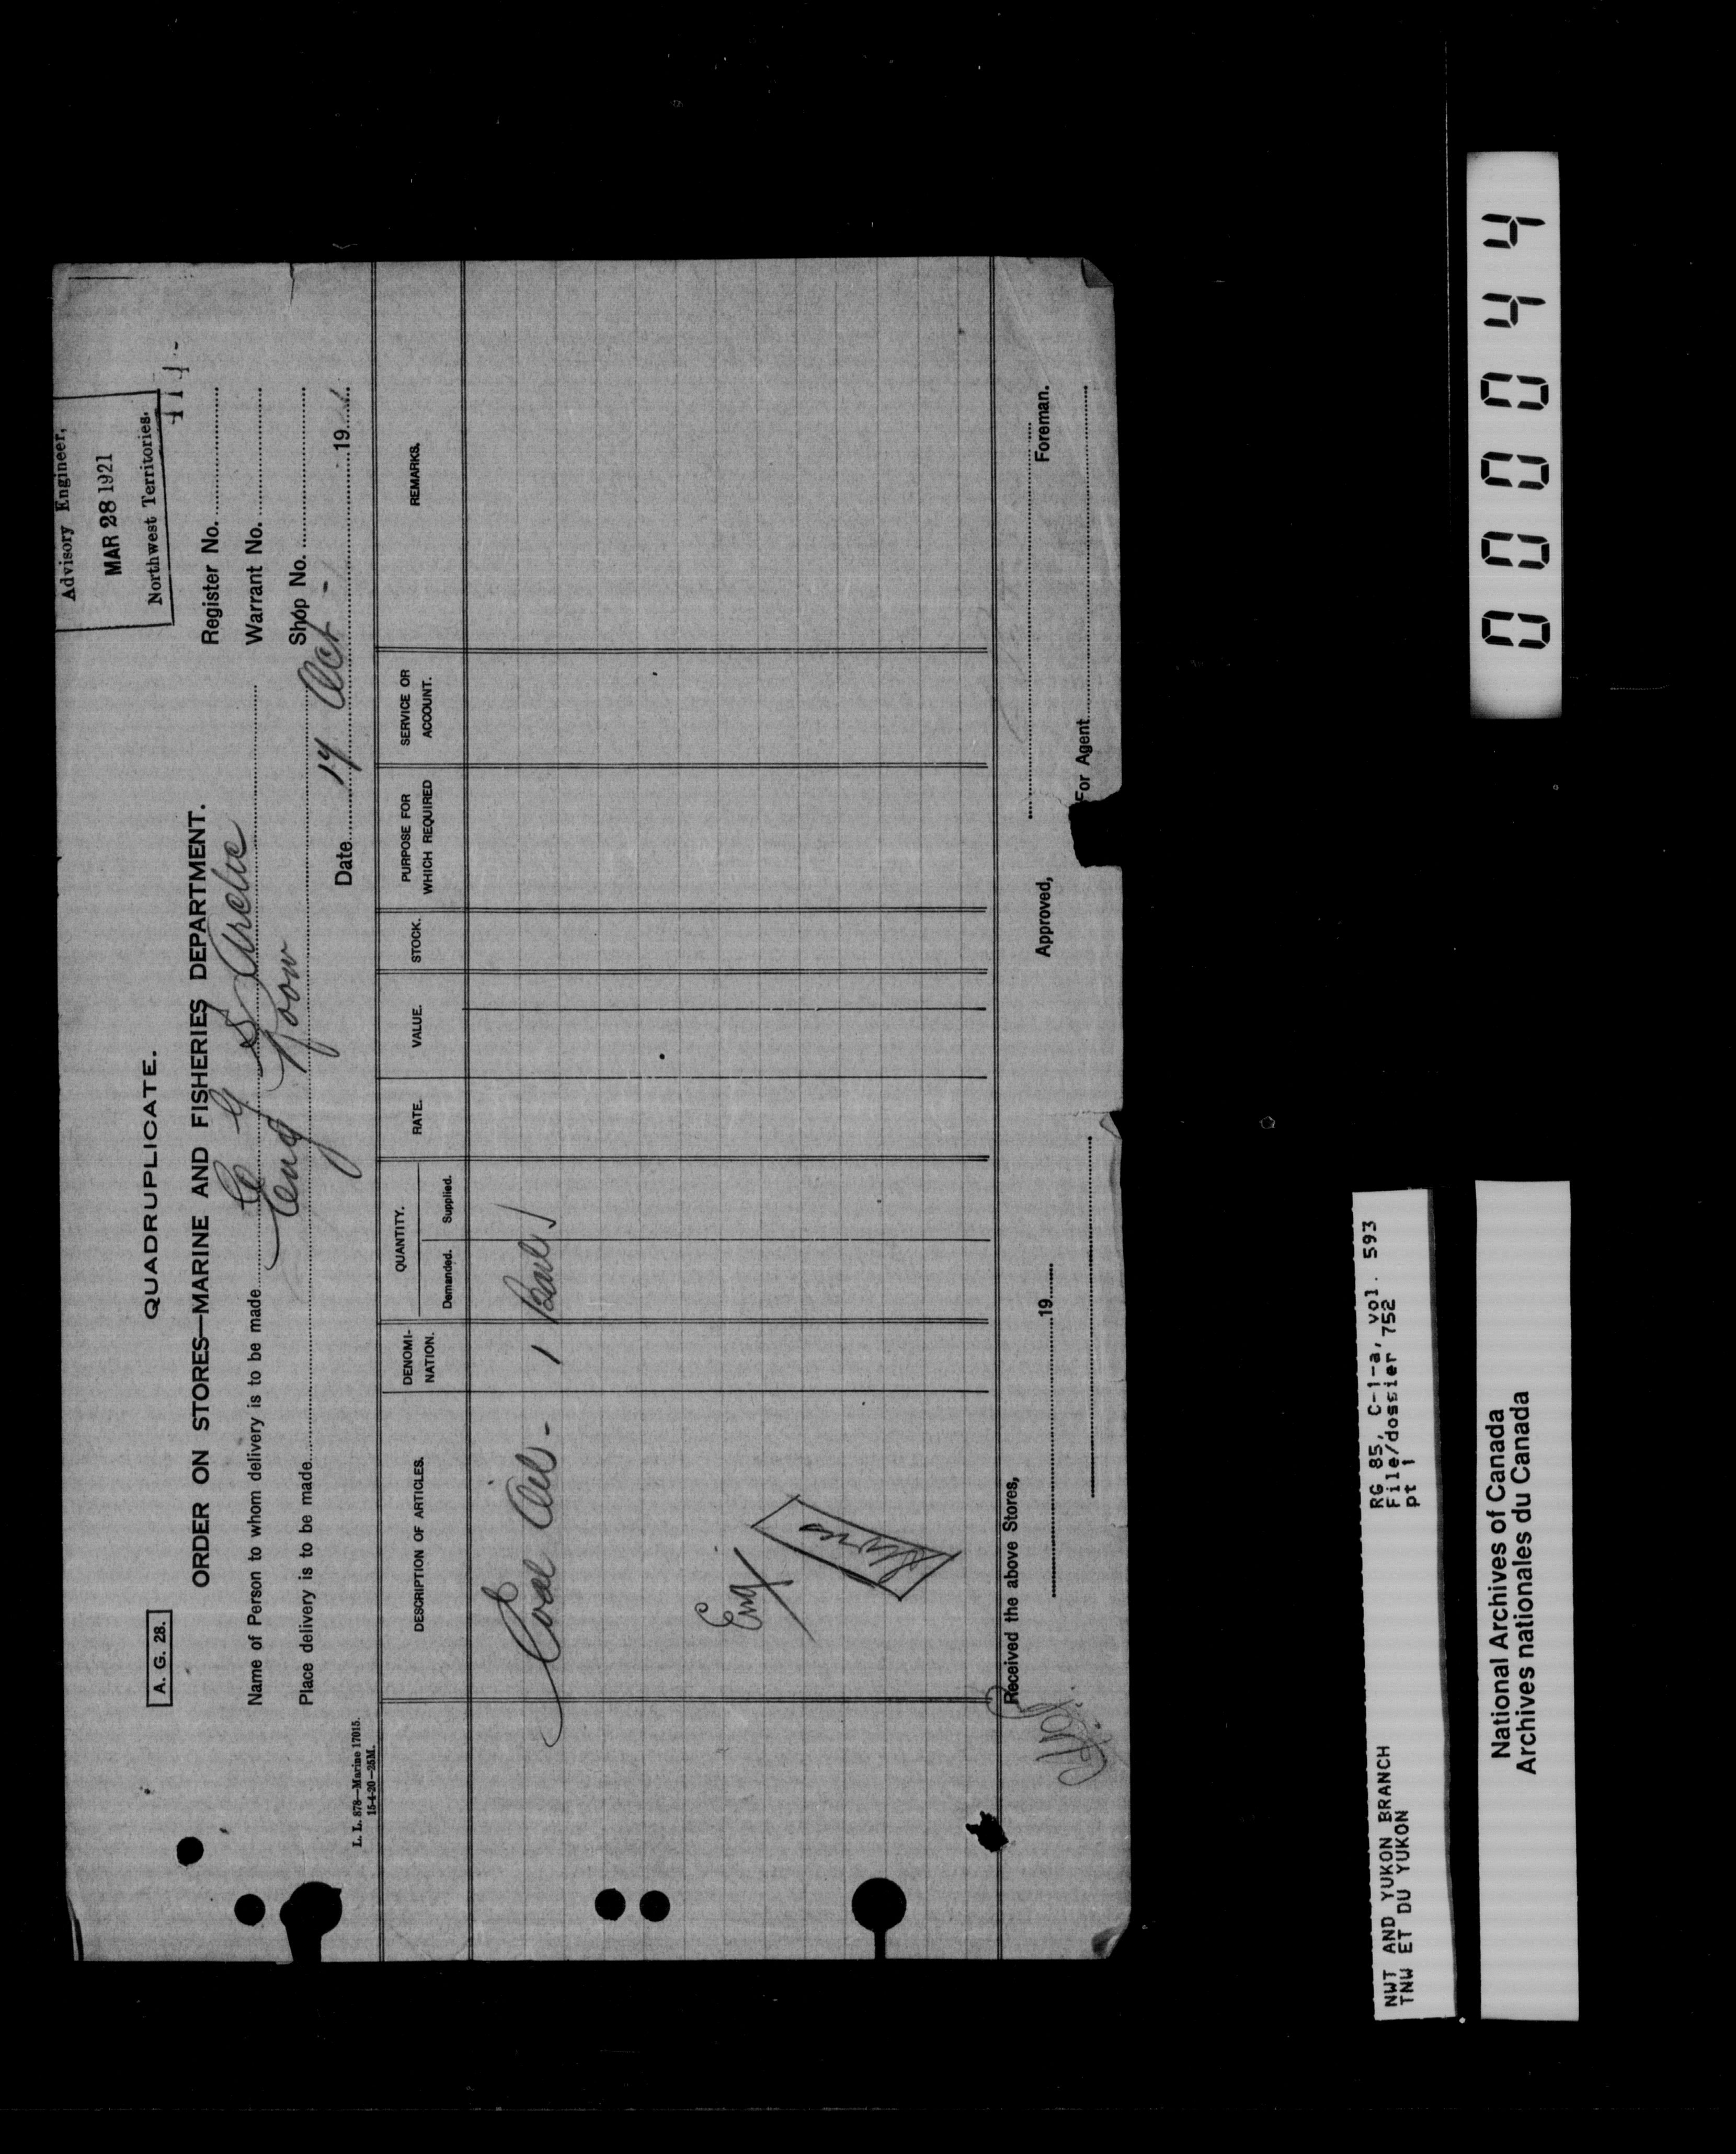 Advisory Engineer,
MAR 28 1921
Northwest Territories.
QUADRUPLICATE.
A. G. 28.
ORDER ON STORES—MARINE AND FISHERIES DEPARTMENT.
Register No.
Name of Person to whom delivery is to be made C G S Arctic
Warrant No.
Place delivery is to be made Eng Room
Shop No.
Date 14 Oct - 19
L. L. 878—Marine 17015.
15-4-20—25M.
DESCRIPTION OF ARTICLES. DENOMI-NATION. QUANTITY. Demanded. Supplied. RATE. VALUE. STOCK. PURPOSE FOR WHICH REQUIRED SERVICE OR ACCOUNT. REMARKS.
Coal Oil - 1
Eng
Received the above Stores,
19
Approved,
Foreman.
For Agent
NWT AND YUKON BRANCH
TNW ET DU YUKON
RG 85, C-1-a, vol. 593
File/dossier 752
pt 1
National Archives of Canada
Archives nationales du Canada
000044